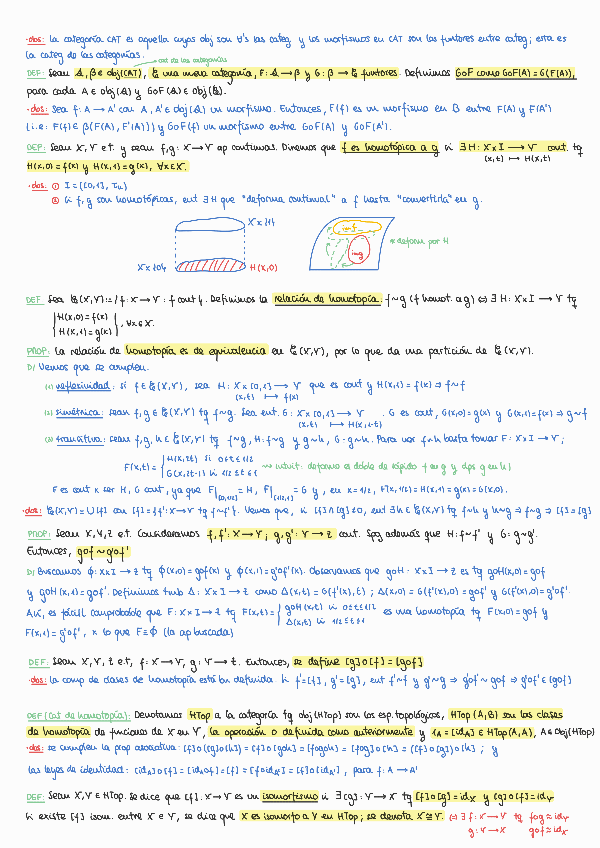 ·obs: la categoría CAT es aquella cuyos obj son ∀'s las categ y los morfismos en CAT son los funtores entre categ; esta es
la categ de las categorías.
cat de las categorías
DEF: Sean A, B ∈ obj(CAT), C una nueva categoría, F: A → B y G: B → C funtores. Definimos GoF como GoF(A) = G(F(A)),
para cada A ∈ obj(A) y GoF(A) ∈ obj(C).
·obs: Sea f: A → A' con A, A' ∈ obj(A) un morfismo. Entonces, F(f) es un morfismo en B entre F(A) y F(A')
(i.e: F(f) ∈ B(F(A), F'(A))) y GoF(f) un morfismo entre GoF(A) y GoF(A').
DEF: Sean X, Y e.t. y sean f, g: X → Y ap continuas. Diremos que f es homotópica a g si ∃ H: X×I → Y cont. tq
(x,t) ↦ H(x,t)
H(x,0) = f(x) y H(x,1) = g(x), ∀x∈X.
·obs: ① I = ([0,1], Tu)
② Si f, g son homotópicas, ent ∃ H que "deforma continuam." a f hasta "convertirla" en g.
X×{1}
X×{0}
H(x,0)
im f
im g
deform por H
DEF Sea C(X,Y) := {f: X → Y : f cont}. Definimos la relación de homotopía: f ~ g (f homot. a g) ⇔ ∃ H: X×I → Y tq
H(x,0) = f(x)
H(x,1) = g(x) , ∀x∈X.
PROP: La relación de homotopía es de equivalencia en C(X,Y), por lo que da una partición de C(X,Y).
D/ Veamos que se cumplen.
(1) reflexividad: si f ∈ C(X,Y), sea H: X×[0,1] → Y que es cont y H(x,1) = f(x) ⇒ f ~ f
(x,t) ↦ f(x)
(2) simétrica: sean f, g ∈ C(X,Y) tq f ~ g. Sea ent. G: X×[0,1] → Y . G es cont, G(x,0) = g(x) y G(x,1) = f(x) ⇒ g ~ f
(x,t) ↦ H(x,1-t)
(3) transitiva: sean f, g, h ∈ C(X,Y) tq f ~ g, H: f ~ g y g ~ h, G: g ~ h. Para ver f ~ h basta tomar F: X×I → Y ;
F(x,t) = { H(x,2t) si 0≤t≤1/2
G(x,2t-1) si 1/2≤t≤1 ⇝ intuit: deformo el doble de rápido f en g y dps g en h)
F es cont x ser H, G cont, ya que F|[0,1/2] = H, F|[1/2,1] = G y, en x=1/2, F(x,1/2) = H(x,1) = g(x) = G(x,0).
·obs: C(X,Y) = ∪[f] con [f] = {f': X → Y tq f ~ f'}. Vemos que, si [f] ∩ [g] ≠ ∅, ent ∃ h ∈ C(X,Y) tq f ~ h y h ~ g ⇒ f ~ g ⇒ [f] = [g]
PROP: Sean X, Y, Z e.t. Consideramos f, f': X → Y ; g, g': Y → Z cont. Spg además que H: f ~ f' y G: g ~ g'.
Entonces, gof ~ g'of'
D/ Buscamos Φ: X×I → Z tq Φ(x,0) = gof(x) y Φ(x,1) = g'of'(x). Observamos que goH : X×I → Z es tq goH(x,0) = gof
y goH(x,1) = gof'. Definimos tmb Δ: X×I → Z como Δ(x,t) = G(f'(x),t) ; Δ(x,0) = G(f'(x),0) = gof' y G(f'(x),0) = g'of'.
Así, es fácil comprobable que F: X×I → Z tq F(x,t) = { goH(x,t) si 0≤t≤1/2 es una homotopía tq F(x,0) = gof y
Δ(x,t) si 1/2≤t≤1
F(x,1) = g'of', x lo que F = Φ (la ap buscada)
DEF: Sean X, Y, Z e.t, f: X → Y, g: Y → Z. Entonces, se define [g]o[f] = [gof]
·obs: la comp de clases de homotopía está bn definida. Si f' = [f], g' = [g], ent f' ~ f y g' ~ g ⇒ g'of' ~ gof ⇒ g'of' ∈ [gof]
DEF (cat de homotopía): Denotamos HTop a la categoría tq obj(HTop) son los esp. topológicos, HTop(A,B) son las clases
de homotopía de funciones de X en Y, la operación o definida como anteriormente y 1A = [idA] ∈ HTop(A,A), A ∈ Obj(HTop)
·obs: se cumplen la prop asociativa: [f]o([g]o[h]) = [f]o[goh] = [fogoh] = [fog]o[h] = ([f]o[g])o[h] ; y
las leyes de identidad: [idA]o[f] = [idAof] = [f] = [foidA'] = [f]o[idA'] , para f: A → A'
DEF: Sean X, Y ∈ HTop. Se dice que [f]: X → Y es un isomorfismo si ∃ [g]: Y → X tq [f]o[g] = idX y [g]o[f] = idY
Si existe [f] isom. entre X e Y, se dice que X es isomorfo a Y en HTop; se denota X ≅ Y. (⇔ ∃ f: X → Y tq fog ≈ idY
g: Y → X gof ≈ idX